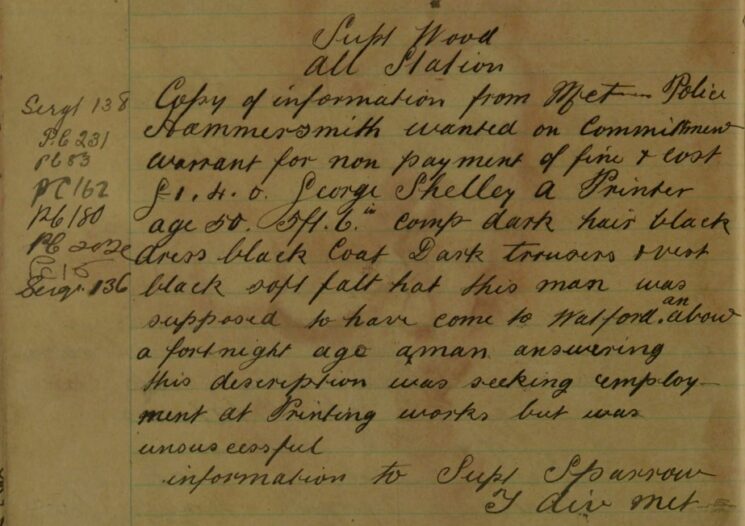 Supt Wood
All Station
Sergt 138
P.C 231
PC 83
PC 162
PC 180
PC 202
Sergt 136
Copy of information from Met Police
Hammersmith wanted on Committment
warrant for non payment of fine & cost
£1.4.0. George Shelley a Printer
age 50. 5ft.6.in comp dark hair black
dress black Coat Dark trousers & vest
black soft falt hat this man was
supposed to have come to Watford. an abow
a fortnight ago a man answering
this description was seeking employ-
ment at Printing works but was
unsuccessful
information to Supt Sparrow
T div Met